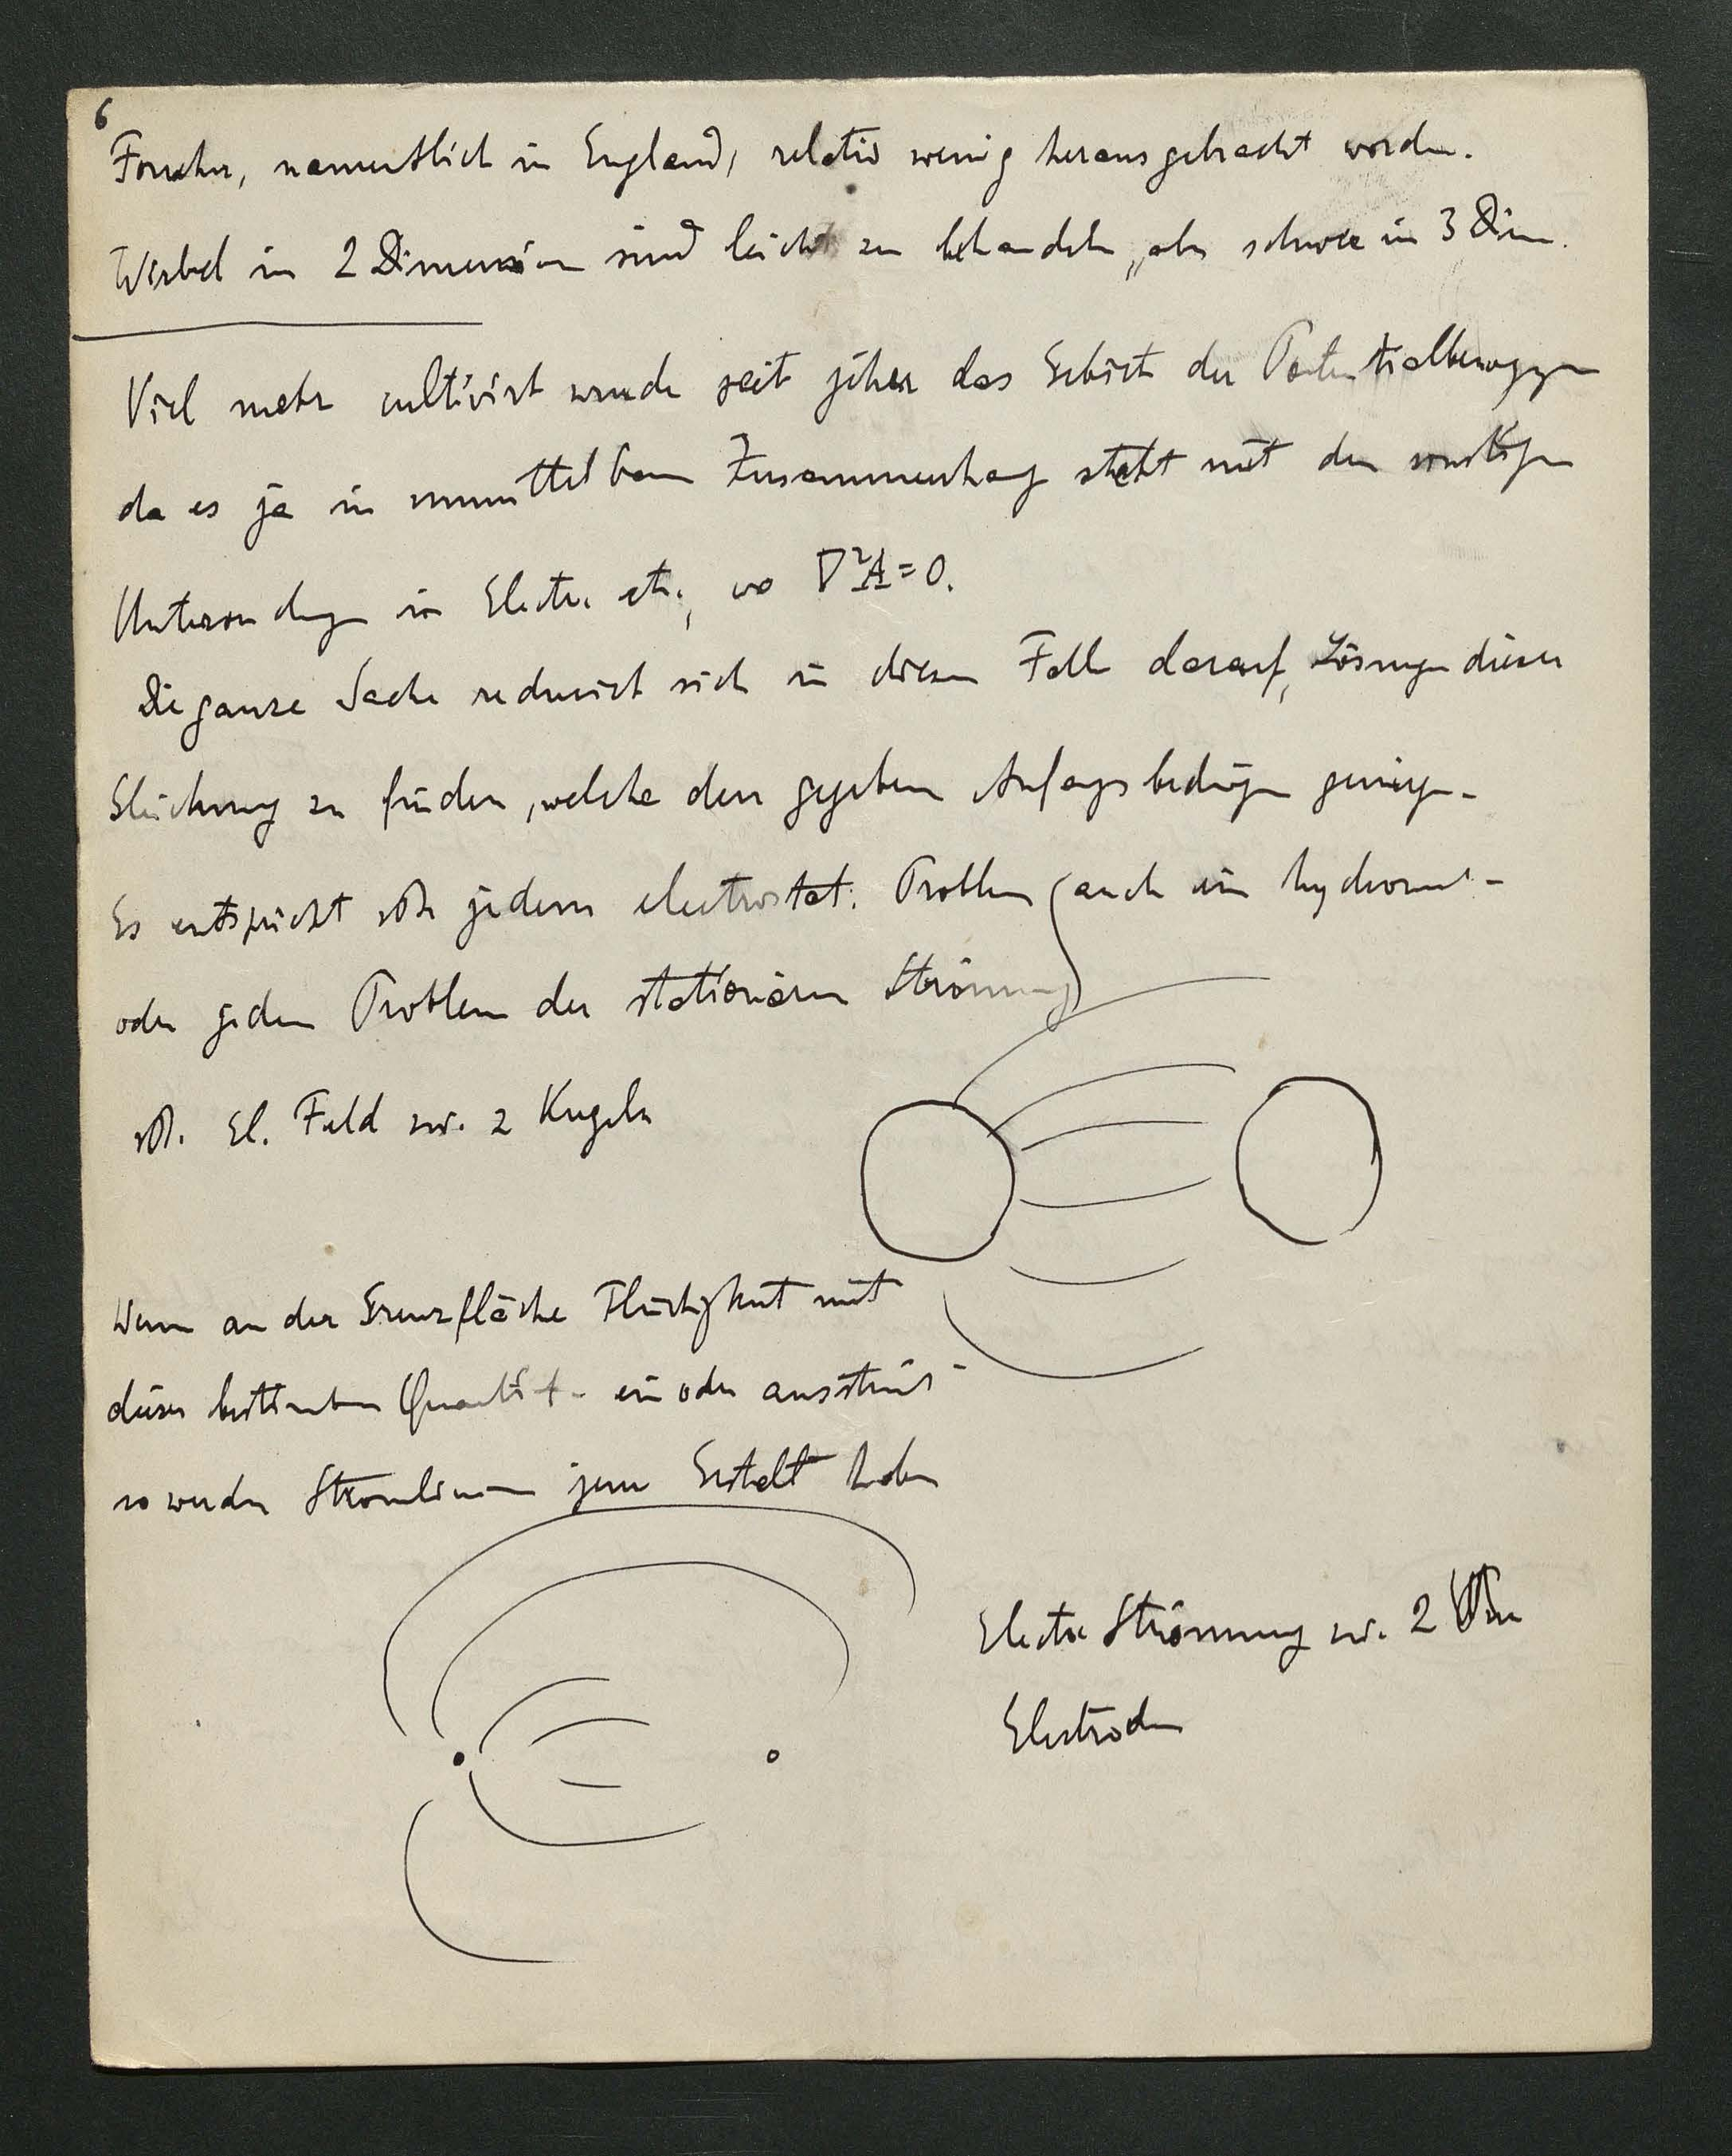 6
Forscher, namentlich in England, relativ wenig herausgebracht worden.
Wirbel in 2 Dimension sind leicht zu behandeln, aber schwer in 3 Dim.
Viel mehr cultivirt wurde seit jeher das Gebiet der
da es ja in unmittelbarem Zusammenhang steht mit den sonstigen
in Electr. etc., wo ∇²A=0.
Die ganze Sache reducirt sich in diesem Fall darauf, Lösungen dieser
Gleichung zu finden, welche den gegebenen genügen.
Es entspricht jedem electrostat. Problem (auch ein
oder jedem Problem der stationären Strömung)
El. Feld zw. 2 Kugeln
Wenn an der Grenzfläche Flüssigkeit mit
dieser bestimmten ein oder
so werden Stromlinien jene Gestalt haben
Electr Strömung zw. 2
Electroden